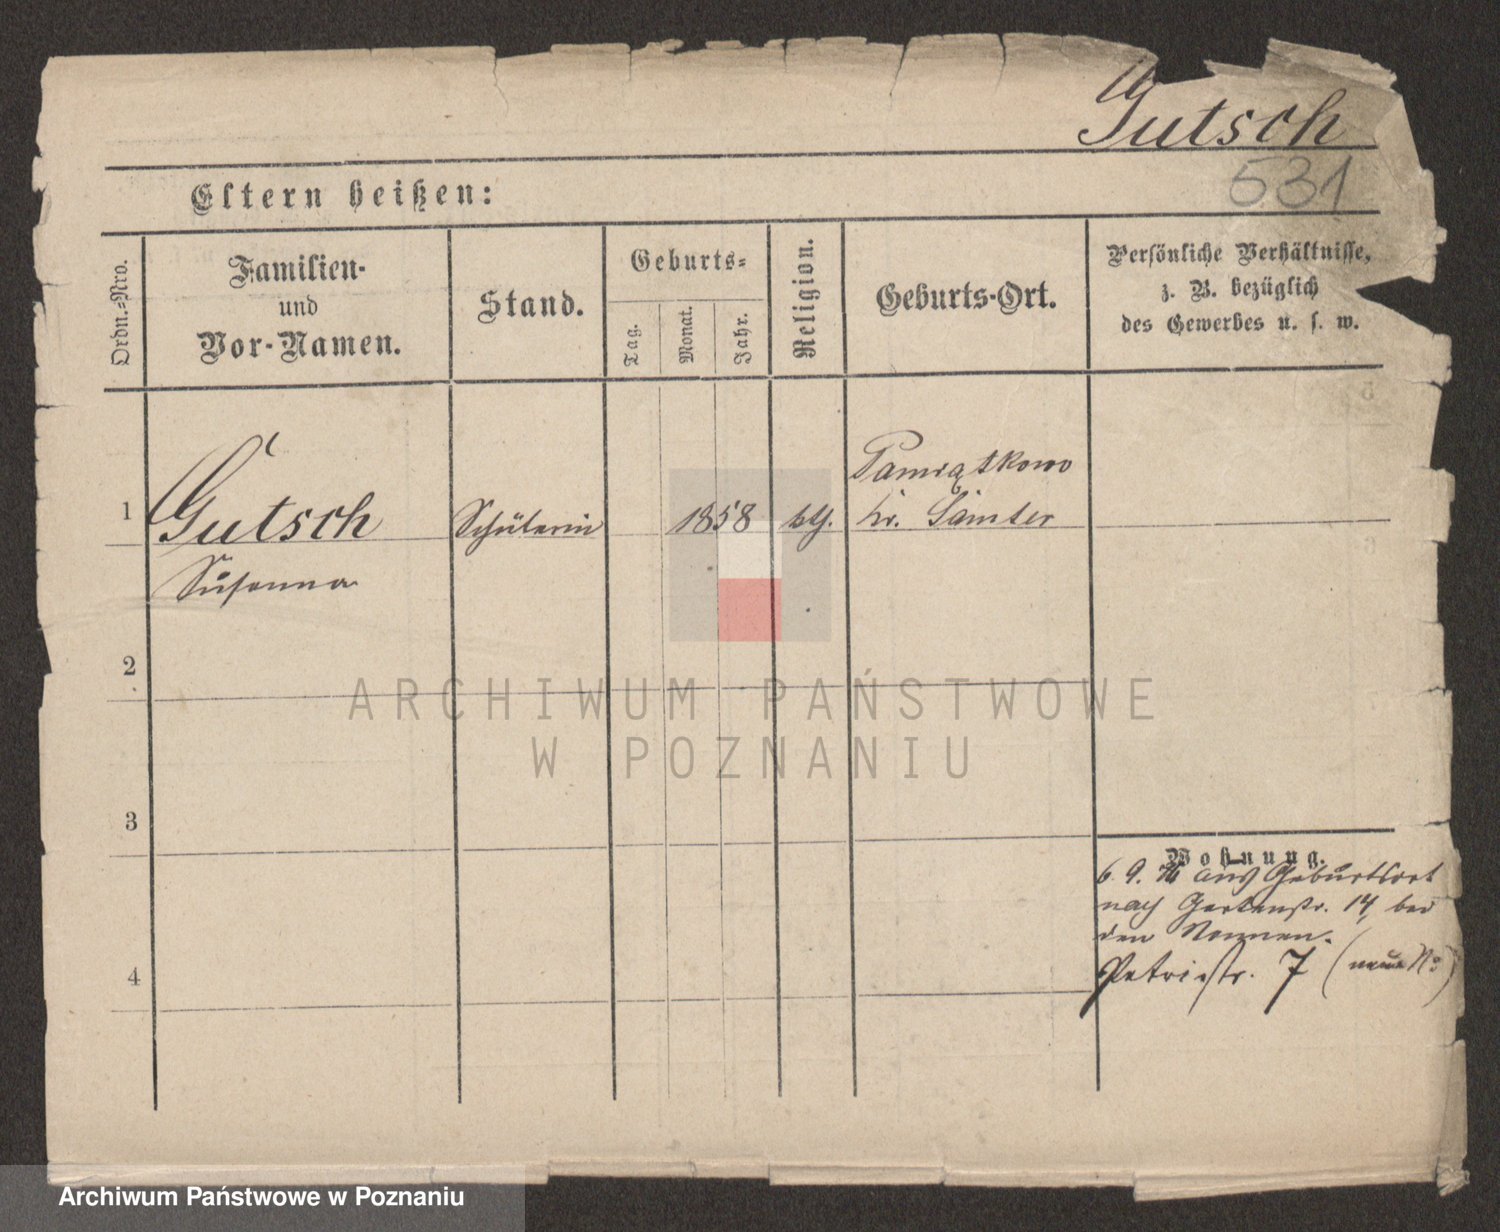 Gutsch
531
Eltern heißen:
Ordn.-Nro.
Familien-
und
Vor-Namen.
Stand.
Geburts-
Tag.
Monat.
Jahr.
Religion.
Geburts-Ort.
Persönliche Verhältnisse,
z. B. bezüglich
des Gewerbes u. s. w.
1
Gutsch
Susanna
Schülerin
1858
kth.
Pamiątkowo
Kr. Samter
2
3
4
Wohnung.
6. 9. 76 aus Geburtsort
nach Gartenstr. 14, bei
den Nonnen.
Petristr. 7 (neue No)
ARCHIWUM PAŃSTWOWE
W POZNANIU
Archiwum Państwowe w Poznaniu